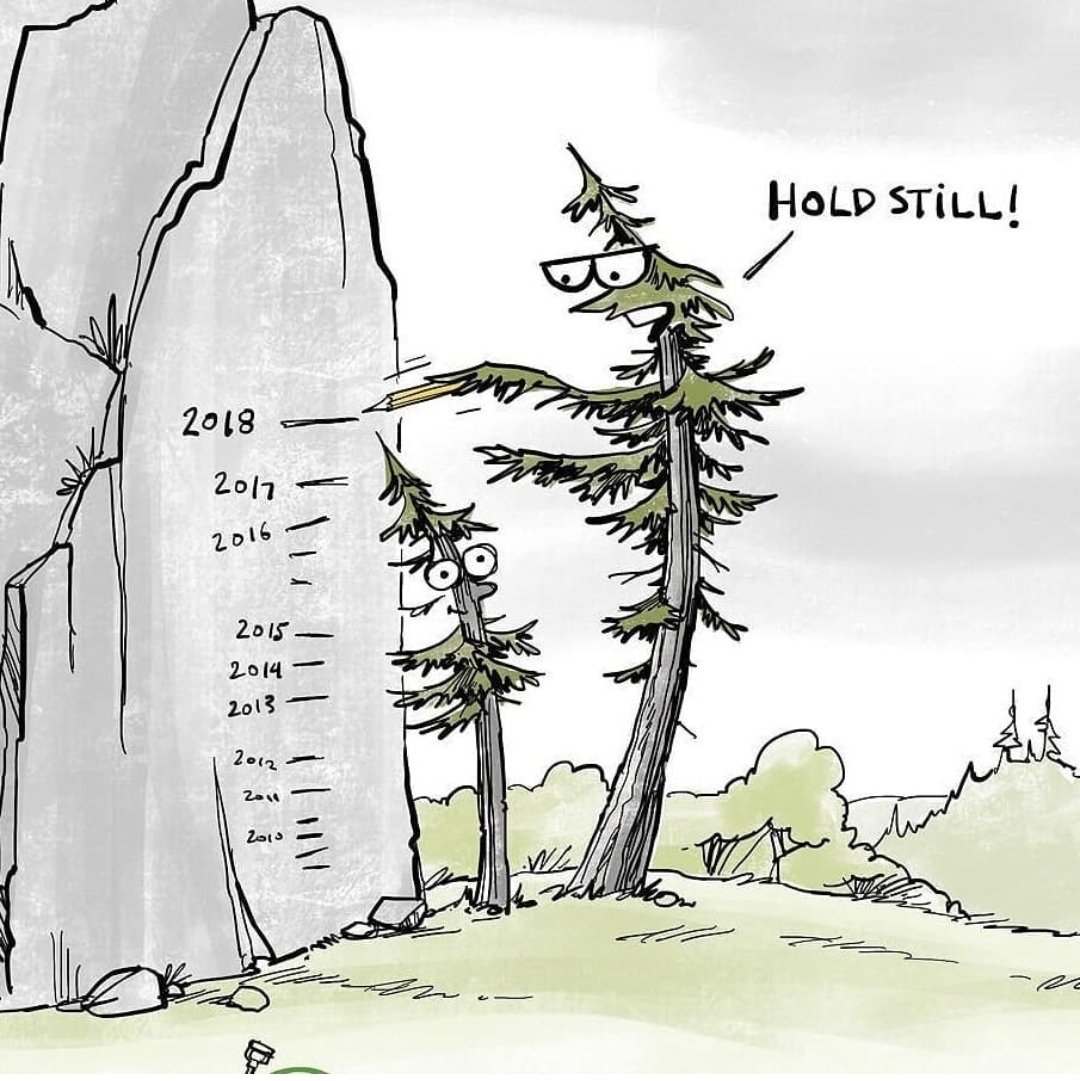 HOLD STILL!
2018
2017
2016
2015
2014
2013
2012
2011
2010